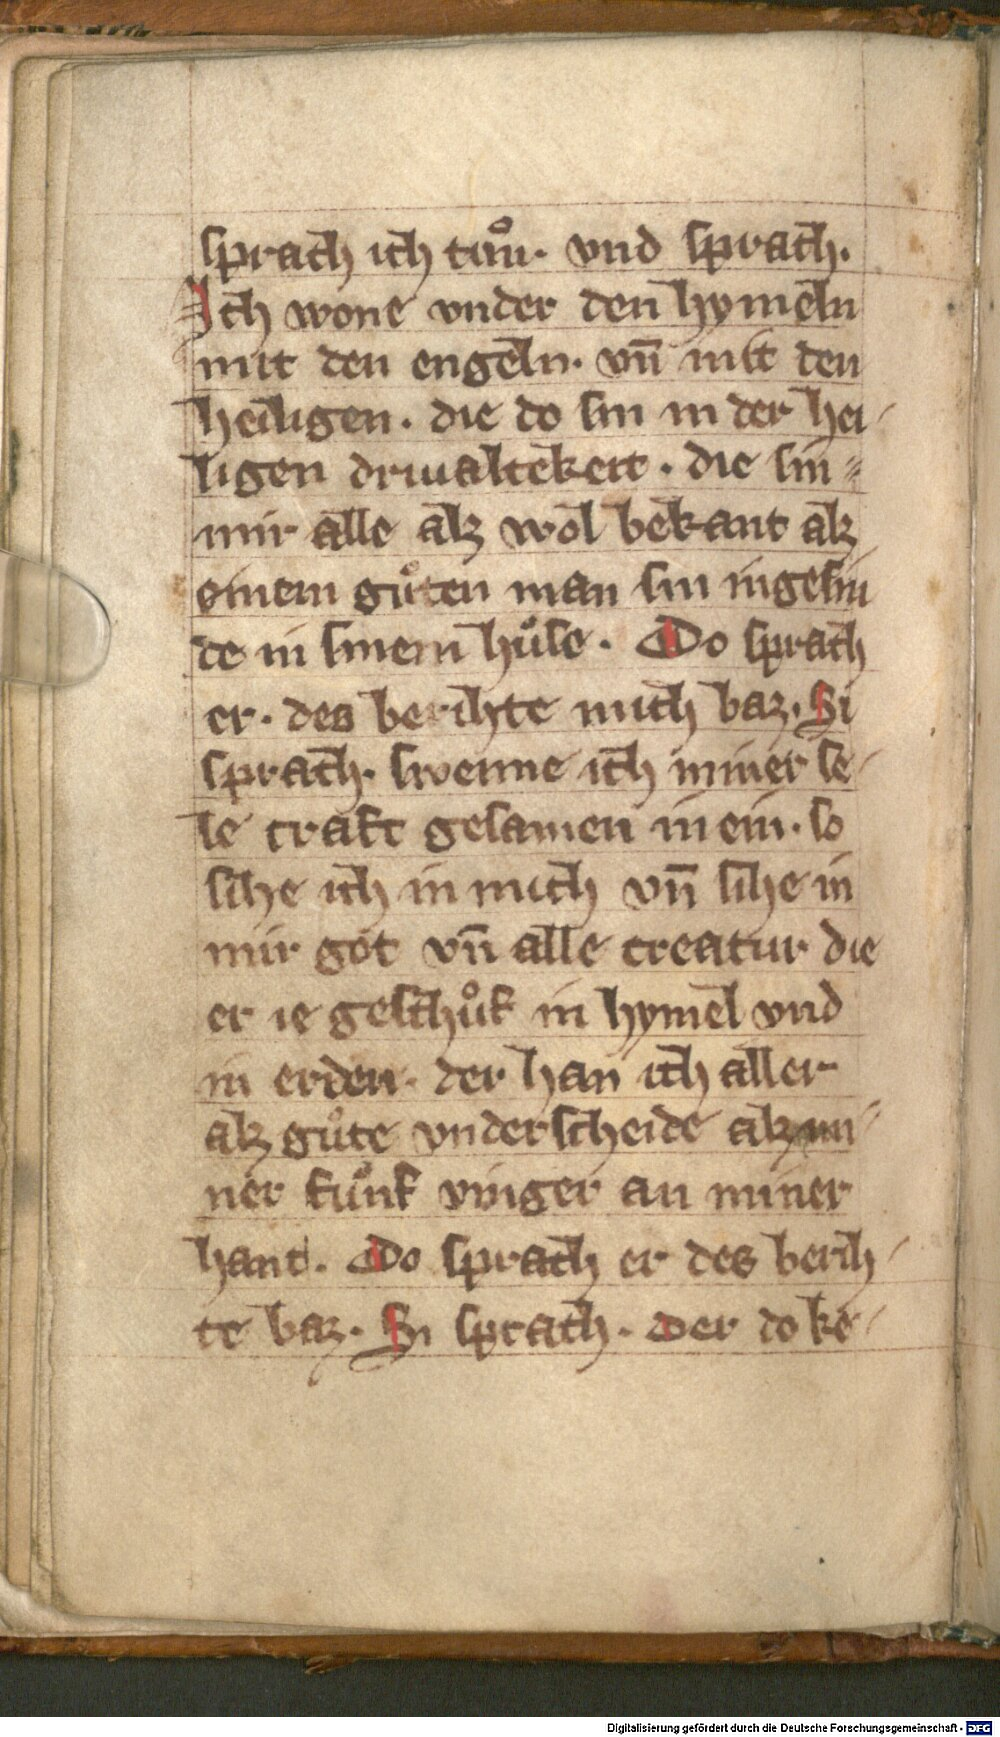 sprach ich tuͦn. vnd sprach.
Ich wone vnder den hymeln
mit den engeln. vn̄ mit den
heiligen. die do sin in der hei-
ligen driualtekeit. die sin=
mir alle alz wol bekant alz
einem guͦten man sin ingesin
de in sinem huͦse. Do sprach
er. des berihte mich baz. Si
sprach. swenne ich miner se-
le craft gesamen in ein. so
sihe ich in mich vn̄ sihe in
mir got vn̄ alle creatur die
er ie geschuͦf in hymel vnd
in erden. der han ich aller
alz guͦte vnderscheide alz mi-
ner fuͦnf vinger an miner
hant. Do sprach er des berih-
te baz. Si sprach. der do ke-
Digitalisierung gefördert durch die Deutsche Forschungsgemeinschaft - DFG